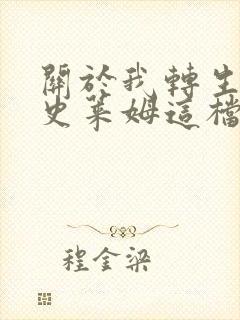 關於我轉生
史萊姆這檔
程金梁